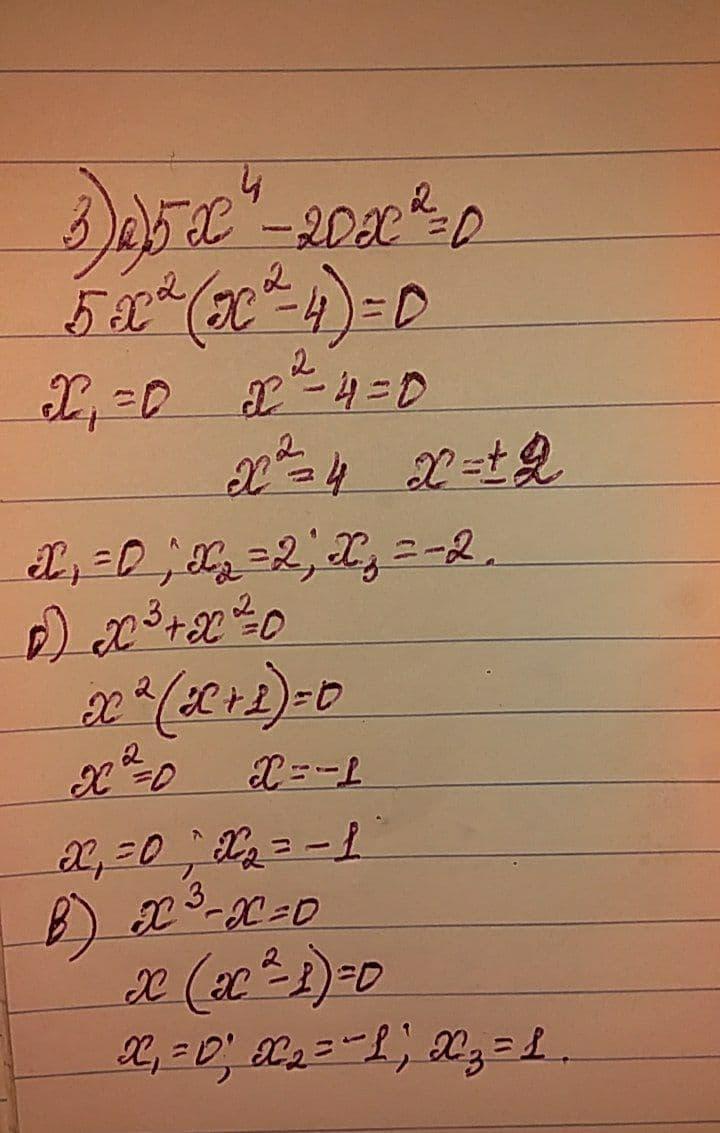 3) а) 5x⁴ - 20x² = 0
5x² (x² - 4) = 0
x₁ = 0 x² - 4 = 0
x² = 4 x = ± 2
x₁ = 0 ; x₂ = 2 ; x₃ = -2 .
б) x³ + x² = 0
x² (x + 1) = 0
x² = 0 x = -1
x₁ = 0 ; x₂ = -1
в) x³ - x = 0
x (x² - 1) = 0
x₁ = 0 ; x₂ = -1 ; x₃ = 1 .